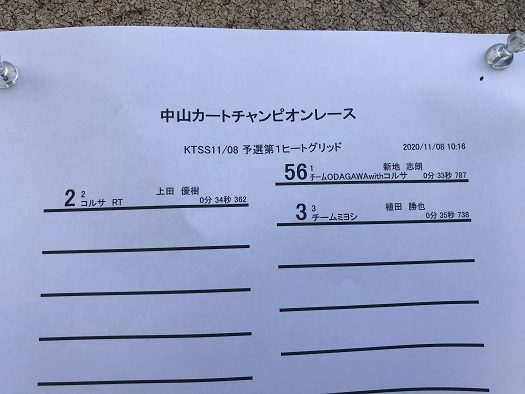 中山カートチャンピオンレース
KTSS11/08 予選第1ヒートグリッド
2020/11/08 10:16
56 1 新地 志朗
チームODAGAWAwithコルサ 0分 33秒 787
2 2 上田 優樹
コルサ RT 0分 34秒 362
3 3 植田 勝也
チームミヨシ 0分 35秒 738